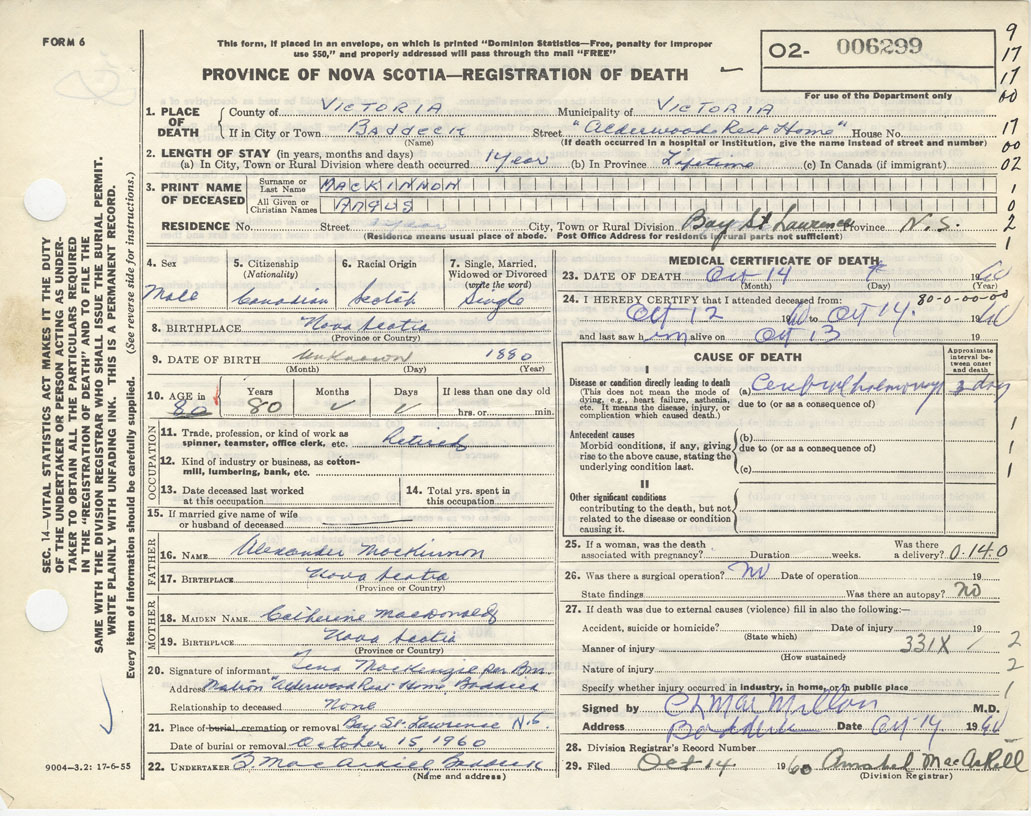 FORM 6
This form, if placed in an envelope, on which is printed "Dominion Statistics—Free, penalty for improper
use $50," and properly addressed will pass through the mail "FREE"
PROVINCE OF NOVA SCOTIA—REGISTRATION OF DEATH
O2- 006299
For use of the Department only
9
17
17
00
17
00
02
1
0
2
1
1. PLACE OF DEATH County of VICTORIA Municipality of VICTORIA
If in City or Town BADDECK Street "Alderwood Rest Home" House No.
(Name) (If death occurred in a hospital or institution, give the name instead of street and number)
2. LENGTH OF STAY (in years, months and days)
(a) In City, Town or Rural Division where death occurred 1 year (b) In Province Lifetime (c) In Canada (if immigrant)
3. PRINT NAME OF DECEASED Surname or Last Name MACKINNON
All Given or Christian Names ANGUS
RESIDENCE No. Street City, Town or Rural Division Bay St Lawrence Province N.S.
(Residence means usual place of abode. Post Office Address for residents in rural parts not sufficient)
4. Sex Male
5. Citizenship (Nationality) Canadian
6. Racial Origin Scotch
7. Single, Married, Widowed or Divorced (write the word) Single
8. BIRTHPLACE Nova Scotia
(Province or Country)
9. DATE OF BIRTH Unknown 1880
(Month) (Day) (Year)
10. AGE in 80 Years 80 Months ✓ Days ✓ If less than one day old hrs. or min.
OCCUPATION
11. Trade, profession, or kind of work as spinner, teamster, office clerk, etc. Retired
12. Kind of industry or business, as cotton-mill, lumbering, bank, etc.
13. Date deceased last worked at this occupation
14. Total yrs. spent in this occupation
15. If married give name of wife or husband of deceased
FATHER
16. NAME Alexander MacKinnon
17. BIRTHPLACE Nova Scotia
(Province or Country)
MOTHER
18. MAIDEN NAME Catherine MacDonald
19. BIRTHPLACE Nova Scotia
(Province or Country)
20. Signature of informant Tena MacKenzie per Bm.
Address Matron "Alderwood Rest Home Baddeck
Relationship to deceased None
21. Place of burial, cremation or removal Bay St. Lawrence N.S.
Date of burial or removal October 15, 1960
22. UNDERTAKER B. MacAskill Baddeck
(Name and address)
MEDICAL CERTIFICATE OF DEATH
23. DATE OF DEATH Oct 14 1960
(Month) (Day) (Year)
80-0-00-00
24. I HEREBY CERTIFY that I attended deceased from:
Oct 12 1960 to Oct 14. 1960
and last saw him alive on Oct 13 19
CAUSE OF DEATH
Approximate interval between onset and death
I
Disease or condition directly leading to death
(This does not mean the mode of dying, e.g., heart failure, asthenia, etc. It means the disease, injury, or complication which caused death.)
(a) 3 days
due to (or as a consequence of)
Antecedent causes
Morbid conditions, if any, giving rise to the above cause, stating the underlying condition last.
(b)
due to (or as a consequence of)
(c)
1
1
1
II
Other significant conditions contributing to the death, but not related to the disease or condition causing it.
25. If a woman, was the death associated with pregnancy? Duration weeks. Was there a delivery? 0.14.0
26. Was there a surgical operation? no Date of operation 19
State findings Was there an autopsy? no
27. If death was due to external causes (violence) fill in also the following:—
Accident, suicide or homicide? Date of injury 19
(State which)
Manner of injury 331X / 2
(How sustained)
Nature of injury 2
Specify whether injury occurred in industry, in home, or in public place 1
Signed by C L MacMillan M.D.
Address Baddeck Date Oct 14 1960
28. Division Registrar's Record Number
29. Filed Oct 14 1960 Annabel MacAskill
(Division Registrar)
SEC. 14—VITAL STATISTICS ACT MAKES IT THE DUTY
OF THE UNDERTAKER OR PERSON ACTING AS UNDER-
TAKER TO OBTAIN ALL THE PARTICULARS REQUIRED
IN THE "REGISTRATION OF DEATH" AND TO FILE THE
SAME WITH THE DIVISION REGISTRAR WHO SHALL ISSUE THE BURIAL PERMIT.
WRITE PLAINLY WITH UNFADING INK. THIS IS A PERMANENT RECORD.
Every item of information should be carefully supplied. (See reverse side for instructions.)
9004—3.2: 17-6-55